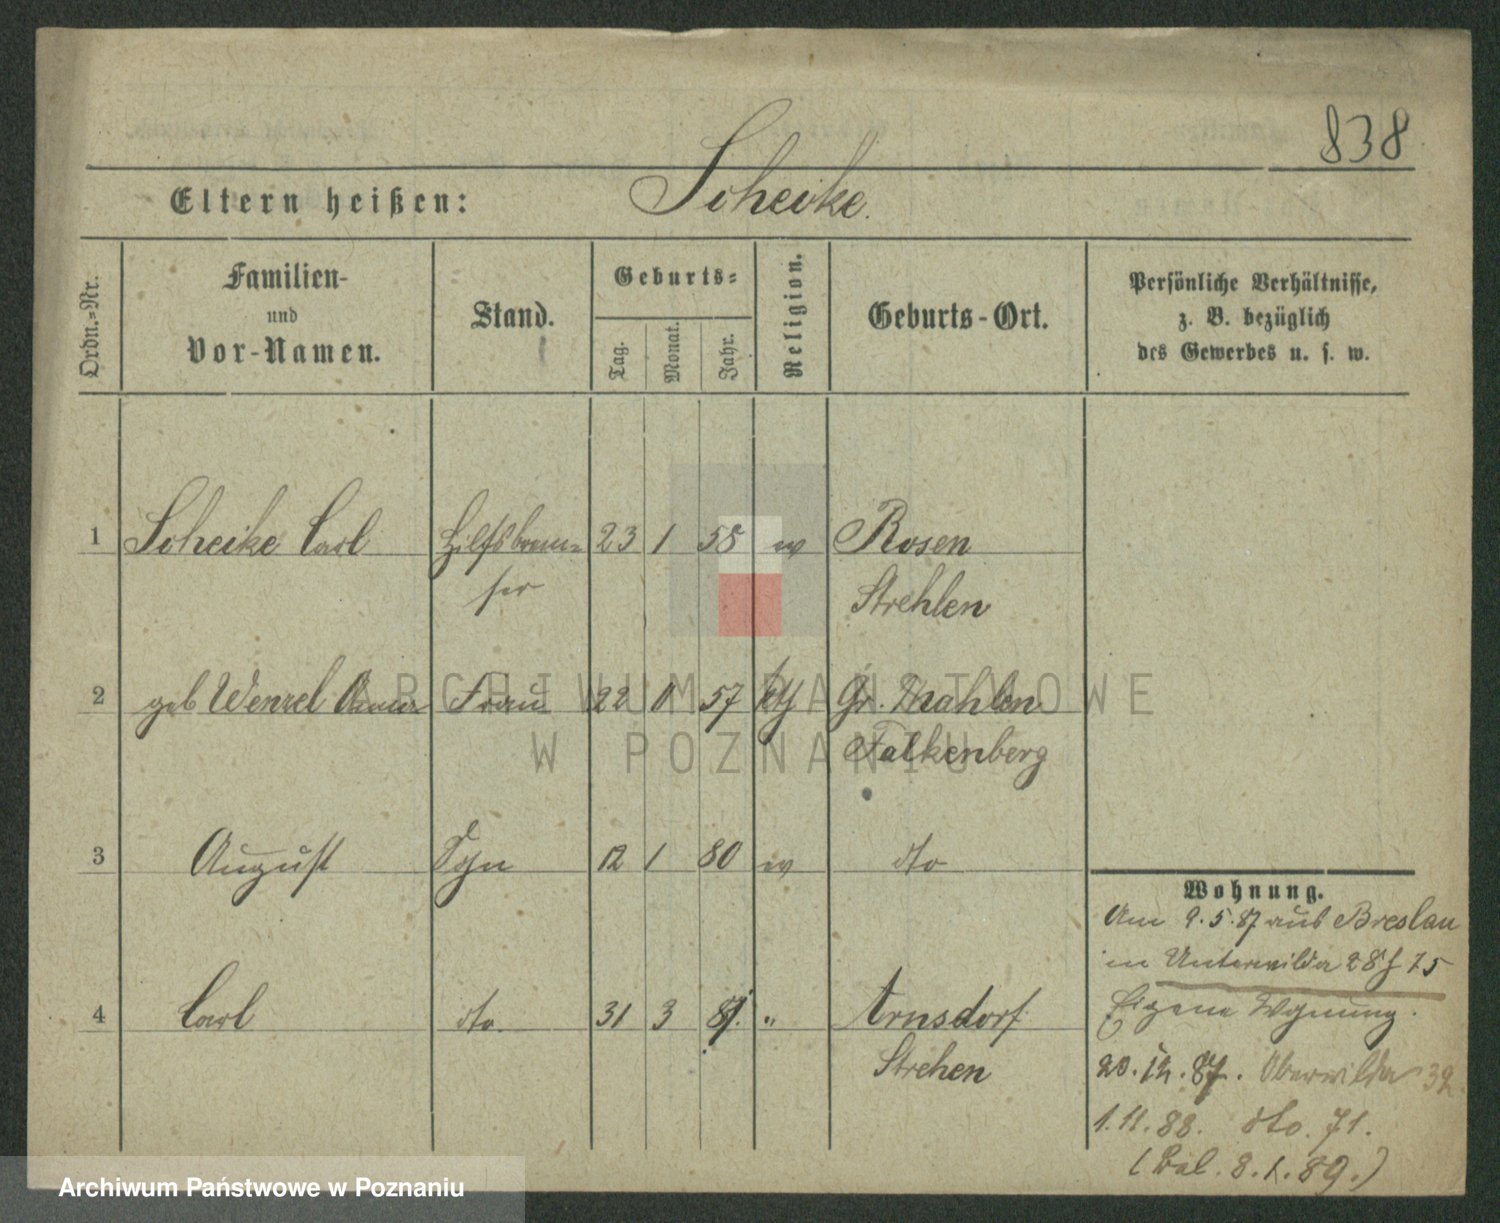 838
Eltern heißen: Scheike.
Ordn.-Nr.
Familien-
und
Vor-Namen.
Stand.
Geburts-
Tag.
Monat.
Jahr.
Religion.
Geburts-Ort.
Persönliche Verhältnisse,
z. B. bezüglich
des Gewerbes u. s. w.
1 Scheike Carl Hilfsbrem= 23 1 58 ev Rosen
ser Strehlen
ARCHIWUM PAŃSTWOWE
W POZNANIU
2 geb Wenzel Anna Frau 22 57 kth Gr. Mahlen
Falkenberg
3 August Sohn 12 1 80 ev dto
4 Carl dto. 31 3 " Arnsdorf
Strehen
Wohnung.
Am 9.5.87 aus Breslau
in Unterwilda 28 75
Eigene Wohnung.
20.12.87. Oberwilda 32
1.11.88. dto. 71.
8.1.89.)
Archiwum Państwowe w Poznaniu